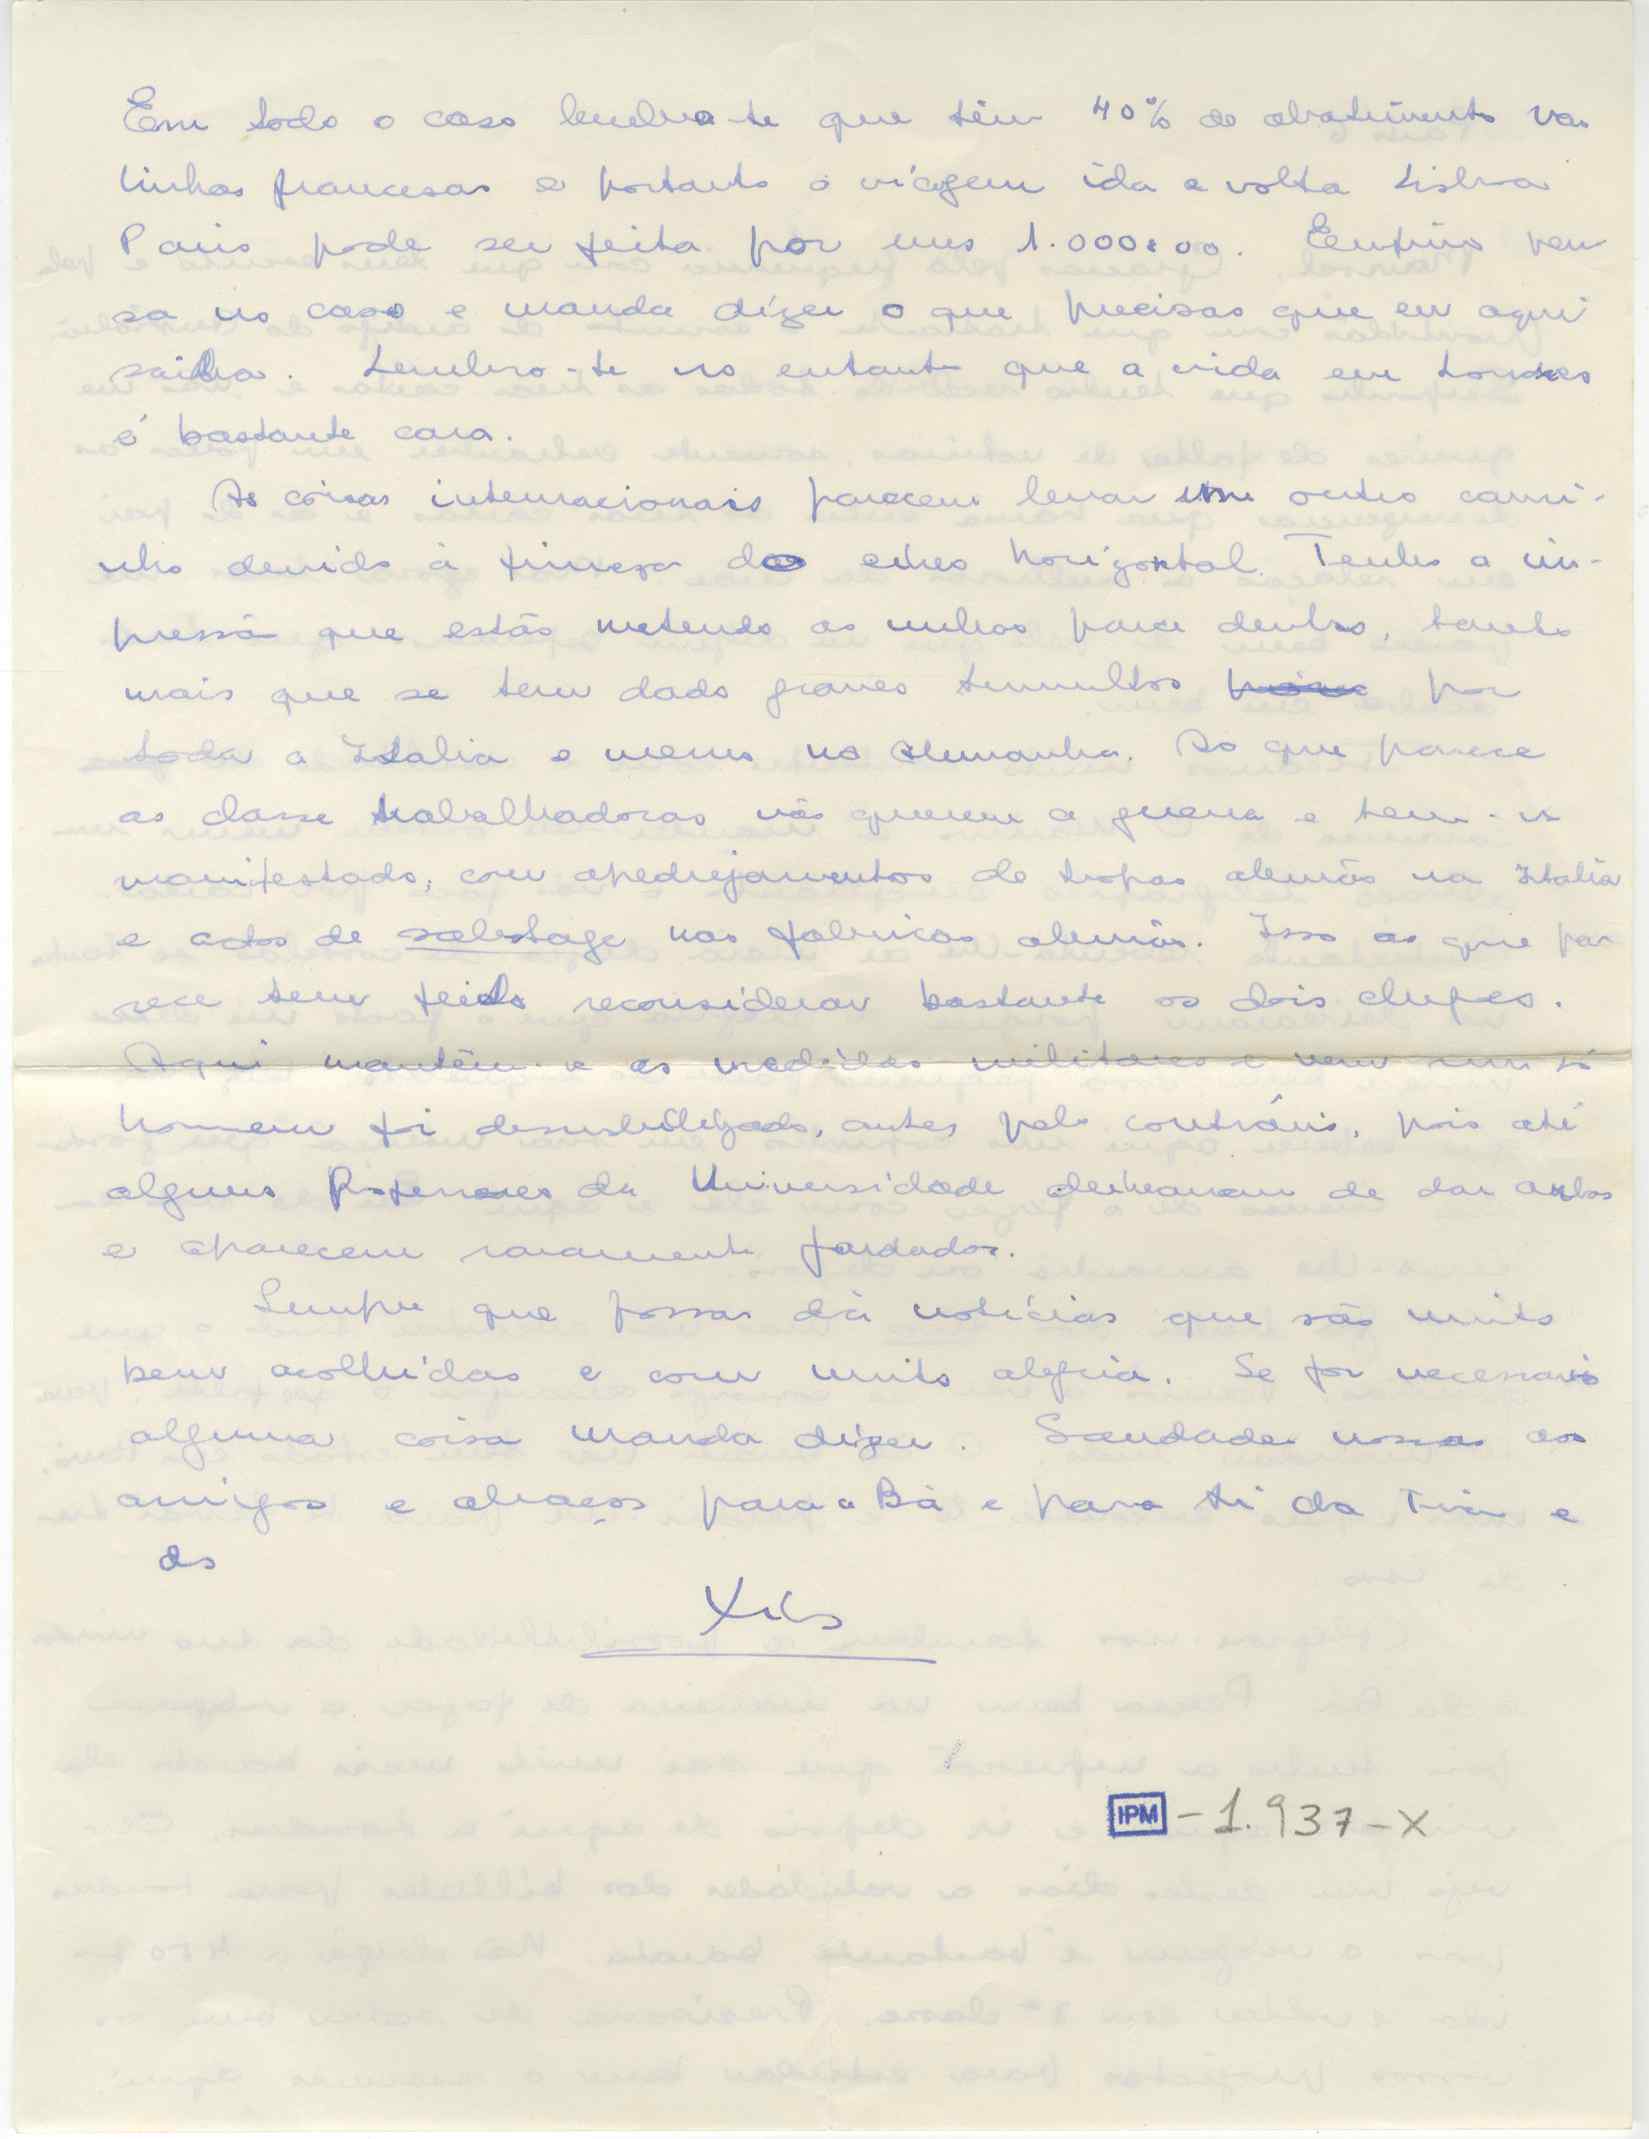 Em todo o caso lembra-te que têm 40% de abatimento nas
linhas francesas e portanto a viagem ida e volta Lisboa
Paris pode ser feita por uns 1.000$00. Emfim pen
sa no caso e manda dizer o que precisas que eu aqui
saiba. Lembro-te no entanto que a vida em Londres
é bastante cara.
As coisas internacionais parecem levar um outro cami-
nho devido à firmeza do eixo horizontal. Tenho a im-
pressão que estão metendo as unhas para dentro, tanto
mais que se tem dado graves tumultos por
toda a Italia e menos na Alemanha. Ao que parece
as classe trabalhadoras não querem a guerra e tem-se
manifestado, com apedrejamentos de tropas alemãs na Italia
e actos de sabotage nas fabricas alemãs. Isso ao que pa
rece tem feito reconsiderar bastante os dois chefes.
Aqui mantêm-se as medidas militares e nem um só
homem foi desmobilizado, antes pelo contrário, pois até
alguns Professores da Universidade deixaram de dar aulas
e aparecem raramente fardados.
Sempre que possas dá notícias que são muito
bem acolhidas e com muita alegria. Se for necessario
alguma coisa manda dizer. Saudades nossas aos
amigos e abraços para a Bá e para ti da e
do
Xico
IPM - 1.937 - X